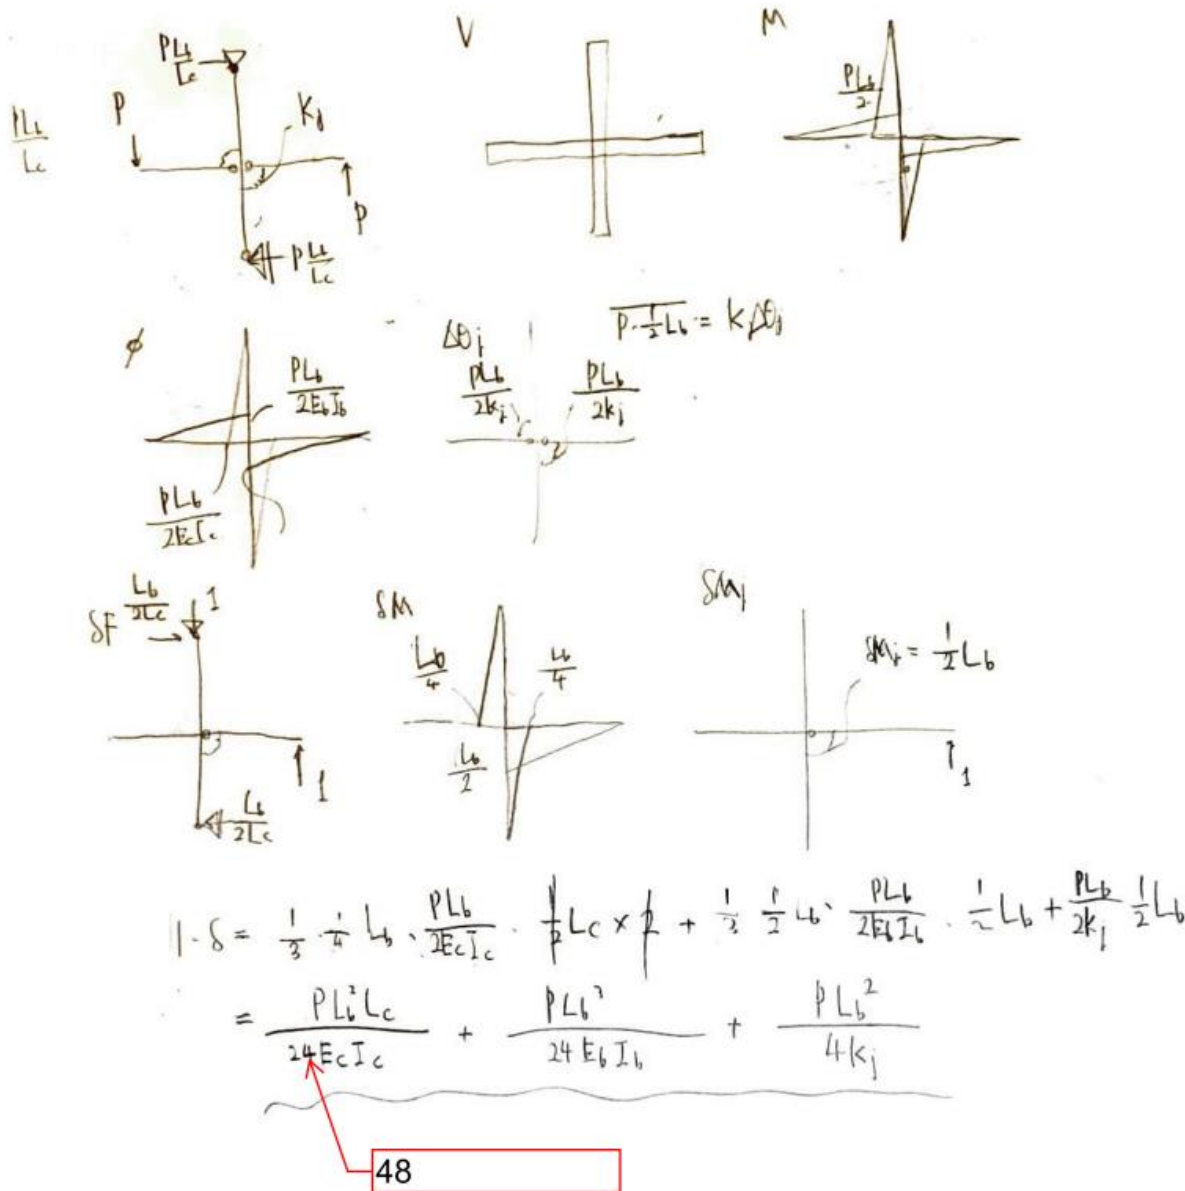 V
M
PLb/Lc
P
Kj
PLb/Lc
P
P Lb/Lc
PLb/2
ϕ
PLb/2EbIb
PLb/2EcIc
Δθj
PLb/2kj
PLb/2kj
P·½Lb = KΔθj
δF
Lb/2Lc
1
1
Lb/2Lc
δM
Lb/4
Lb/4
Lb/2
δMj
δMj = ½Lb
1
1·δ = 1/3 · 1/4 Lb · PLb/2EcIc · 1/2 Lc × 2 + 1/3 · 1/2 Lb · PLb/2EbIb · 1/2 Lb + PLb/2kj · 1/2 Lb
= PLb²Lc/24EcIc + PLb³/24EbIb + PLb²/4kj
48